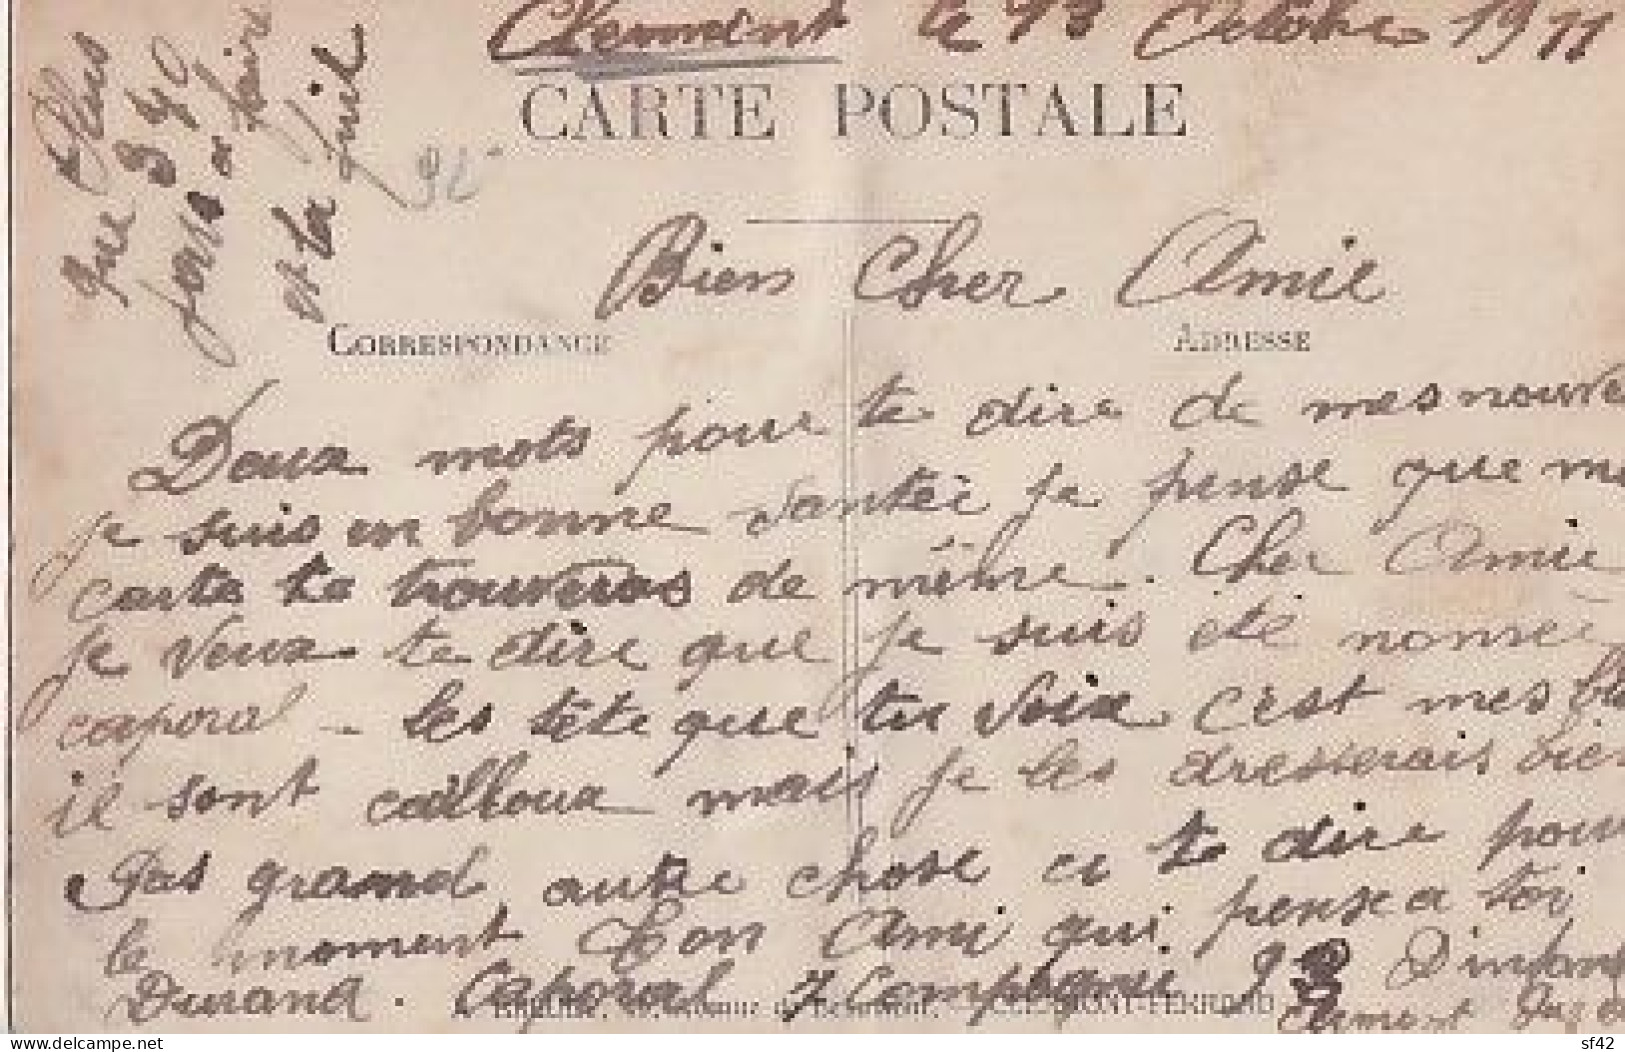 Clermont le 13 Octobre 1911
CARTE POSTALE
Plus
que 349
jours a fair
et la fuit
Bien Cher Amie
CORRESPONDANCE
ADRESSE
Deux mots pour te dire de mes nouve
je suis en bonne santée je pense que ma
carte te trouveras de même. Cher Amie
je veux te dire que je suis été nomée
caporal - les tête que tu voix c'est mes bl
il sont cailloux mais je les dresserais bien
Pas grand autre chose a te dire pour
le moment Ton Ami qui pense a toi
Durand. Caporal 7 Compagnie 92 D'infant
CLERMONT-FERRAND
Clermont
delcampe.net
sf42